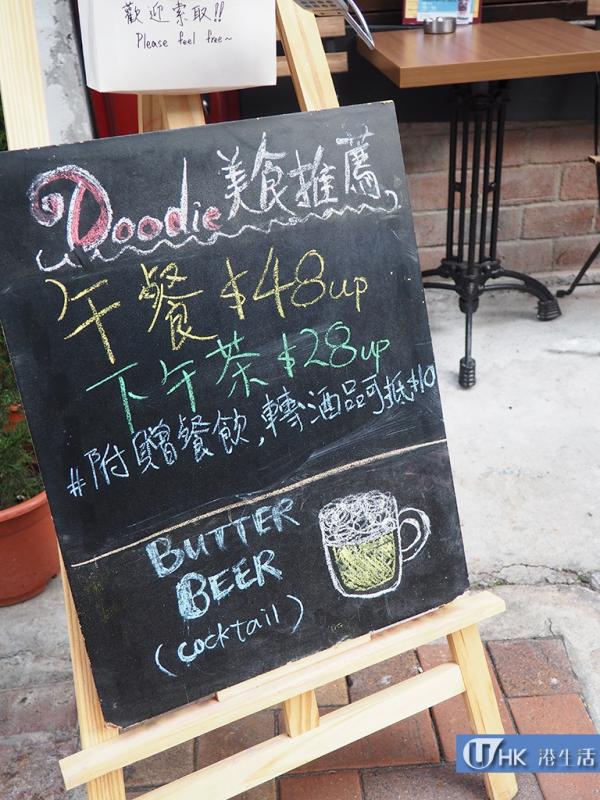 歡迎索取!!
Please feel free~
Doodie美食推薦
午餐 $48up
下午茶 $28up
#附贈餐飲,轉酒品可抵$10
BUTTER
BEER
(cocktail)
U HK 港生活